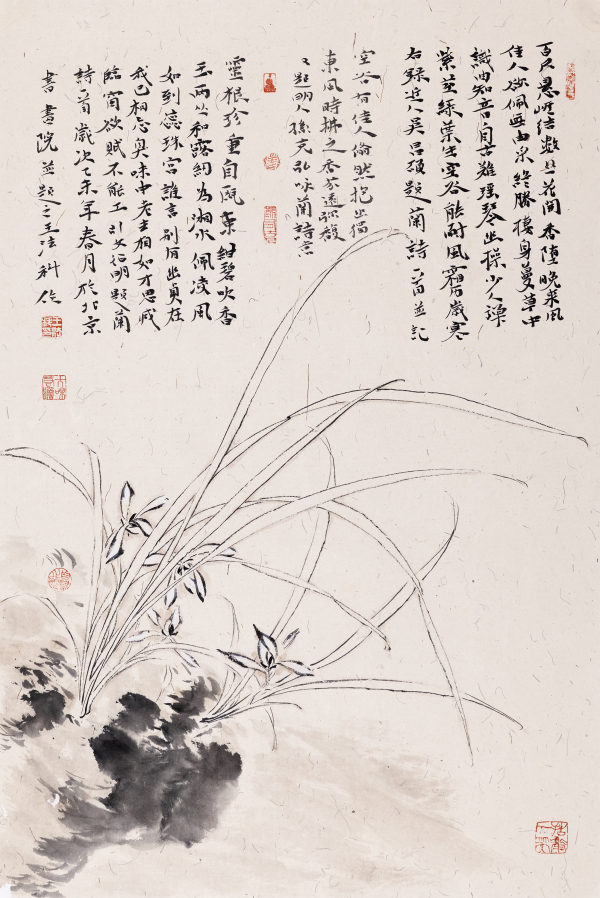 百尺懸崕结數叢花開香墮晚来風
佳人欲佩無由采終勝棲身蔓草中
識曲知音自古難瑶琴幽操少人彈
紫莖綠葉生空谷能耐風霜歲寒
右録近人吳昌碩題蘭詩二首並記
空谷有佳人倏然抱幽獨
東風時拂之香芬遠弥馥
又題明人孫克弘咏蘭詩
靈根珍重自甌東紺碧吹香
玉兩丛和露紉為湘水佩凌風
如到蕊珠宮誰言別有幽貞在
我已相忘臭味中老去相如才思減
臨窗欲賦不能工引文徵明題蘭
詩一首歲次乙未年春月於北京
書畫院並題之王法科作